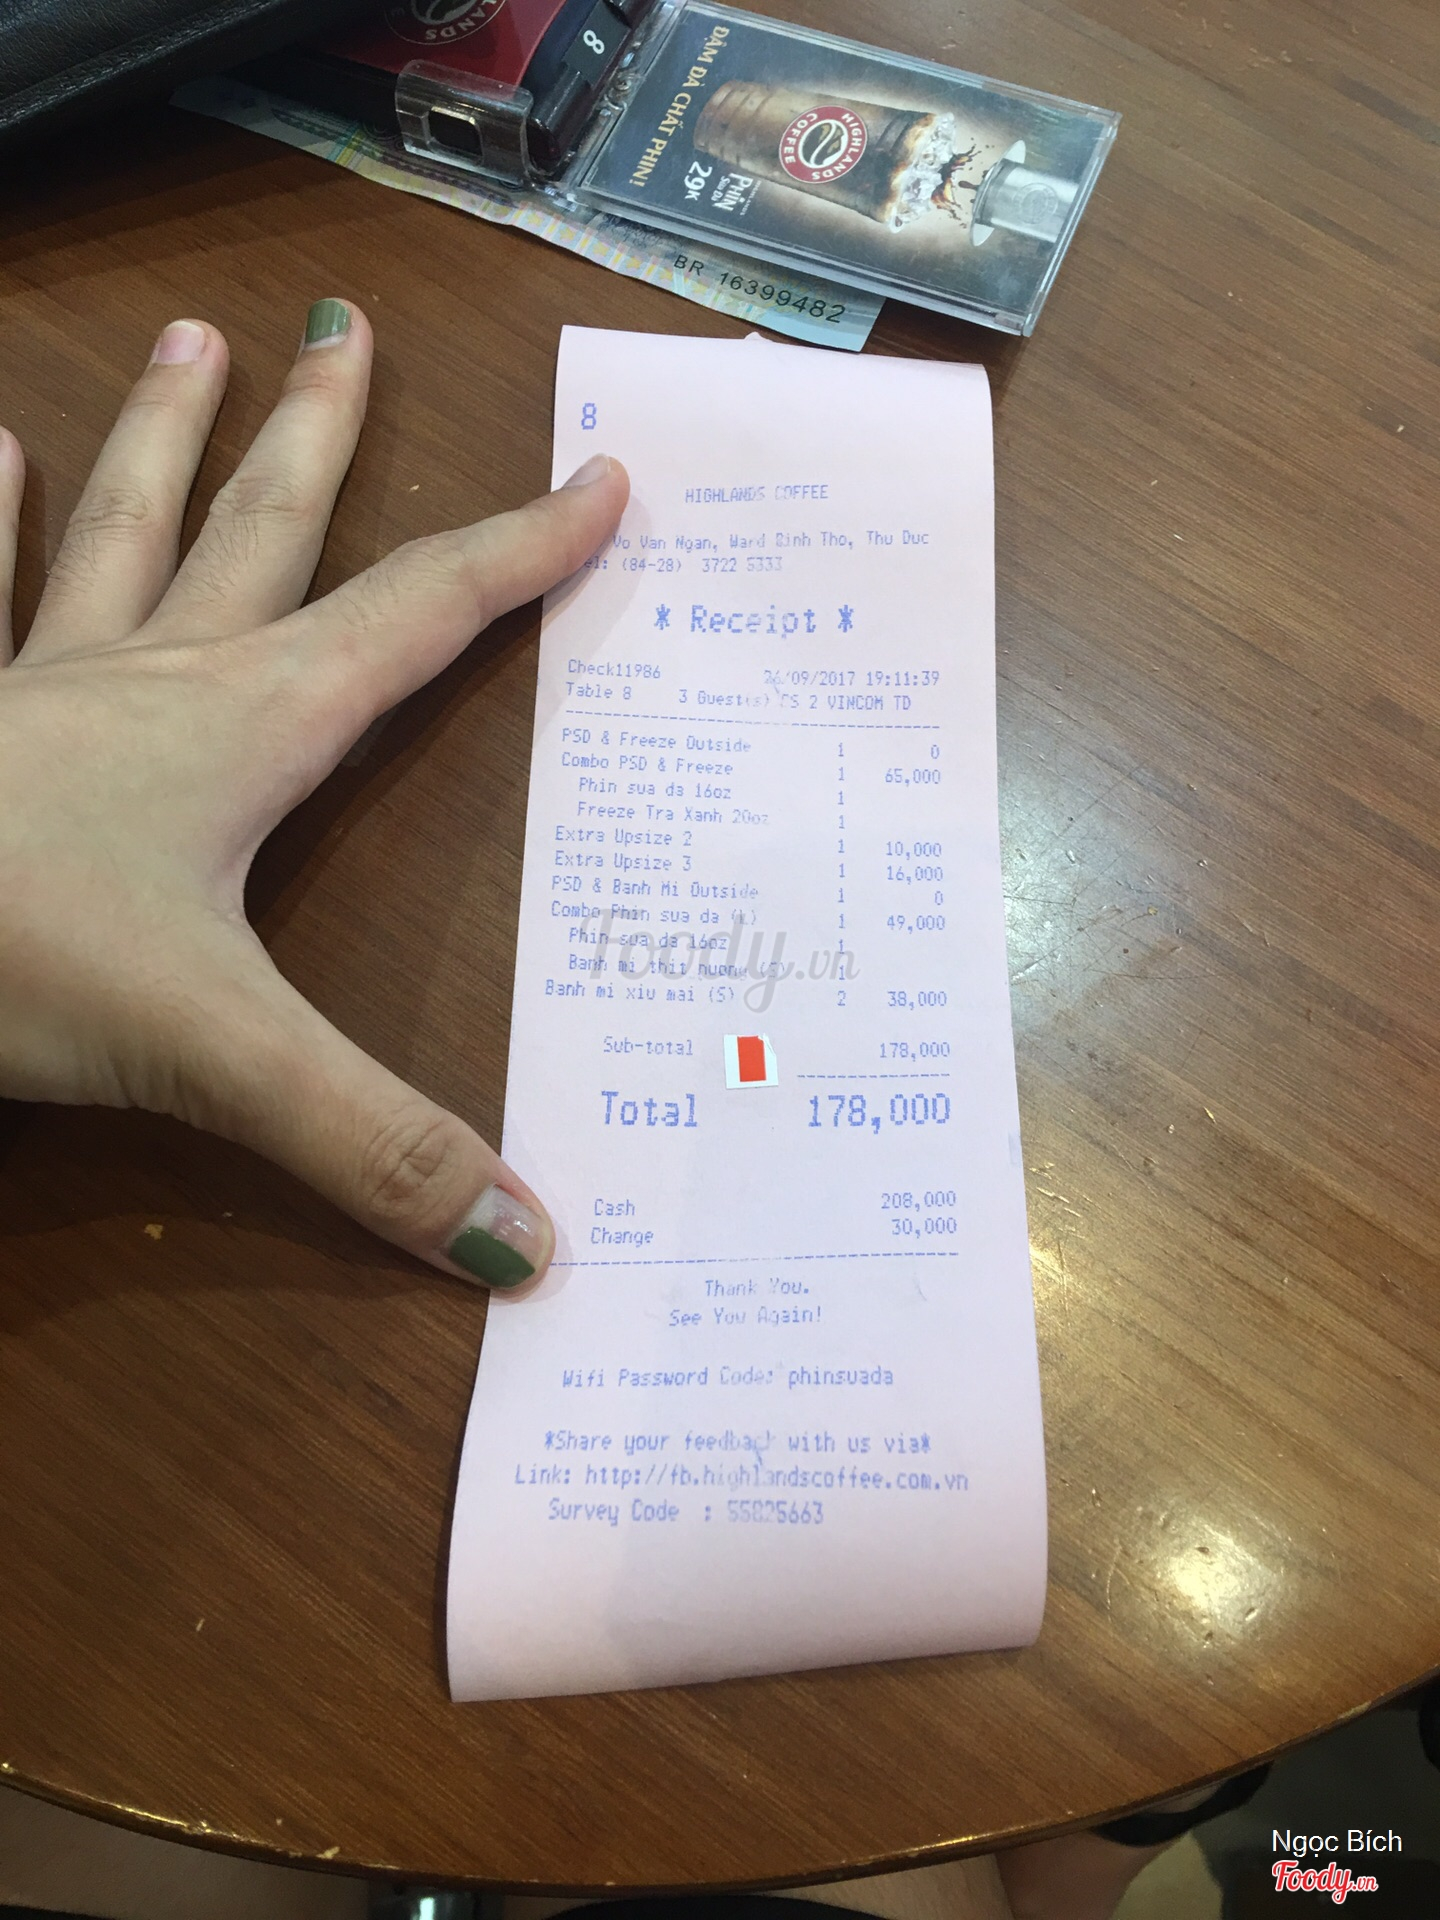 HIGHLANDS
8
ĐẬM ĐÀ CHẤT PHIN!
HIGHLANDS
COFFEE
PHIN
SỮA ĐÁ
29K
BR 16399482
8
HIGHLANDS COFFEE
Vo Van Ngan, Ward Binh Tho, Thu Duc
el: (84-28) 3722 5333
* Receipt *
Check11986 26/09/2017 19:11:39
Table 8 3 Guest(s) CS 2 VINCOM TD
PSD & Freeze Outside 1 0
Combo PSD & Freeze 1 65,000
Phin sua da 16oz 1
Freeze Tra Xanh 20oz 1
Extra Upsize 2 1 10,000
Extra Upsize 3 1 16,000
PSD & Banh Mi Outside 1 0
Combo Phin sua da (L) 1 49,000
Phin sua da 16oz 1
Banh mi thit nuong (S) 1
Banh mi xiu mai (S) 2 38,000
Foody.vn
Sub-total 178,000
Total 178,000
Cash 208,000
Change 30,000
Thank You.
See You Again!
Wifi Password Code: phinsuada
*Share your feedback with us via*
Link: http://fb.highlandscoffee.com.vn
Survey Code : 55825663
Ngọc Bích
Foody.vn